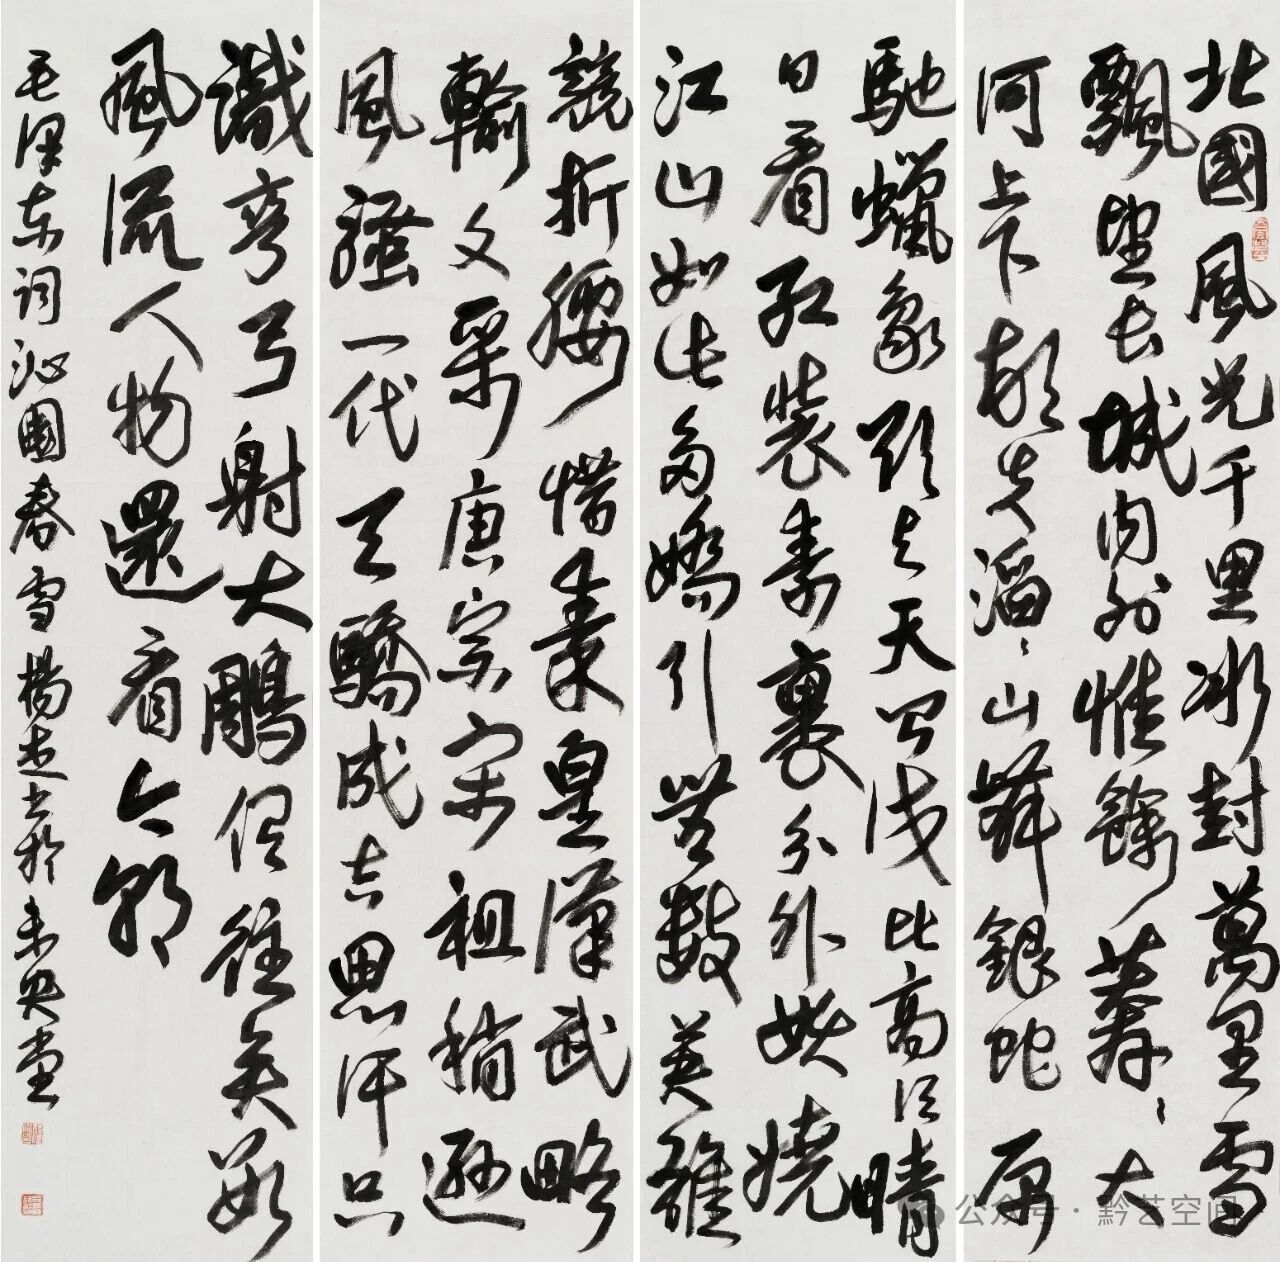 北國風光千里冰封萬里雪
飄望長城内外惟餘莽々大
河上下頓失滔々山舞銀蛇原
馳蠟象欲與天公試比高須晴
日看紅裝素裹分外妖嬈
江山如此多嬌引無數英雄
競折腰惜秦皇漢武略
輸文采唐宗宋祖稍遜
風騷一代天驕成吉思汗只
識彎弓射大鵰俱往矣數
風流人物還看今朝
毛澤东詞沁園春雪楊書於未央堂
公众号·黔艺空间